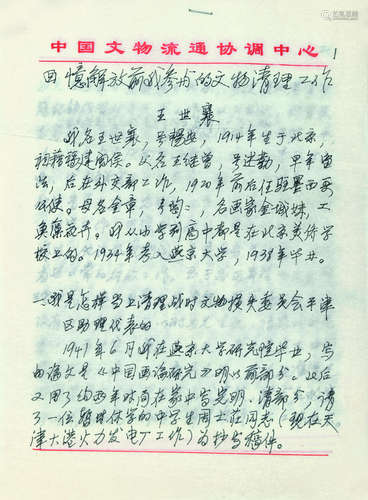 中国文物流通协调中心
1
回憶解放前我参与的文物清理工作
王世襄
我名王世襄,号暢安,1914年生于北京,
祖籍福建闽侯。父名王继曾,号述勤,早年留
法,后在外交部工作,1920年前后任驻墨西哥
公使。母名金章,号陶〻,名画家金城妹,工
鱼藻花卉。我从小学到高中都是在北京美侨学
校上的。1934年考入燕京大学,1938年毕业。
一、我是怎样当上清理战时文物损失委员会平津
区助理代表的
1941年6月我在燕京大学研究院毕业,写
的论文是《中国画论研究》明以前部分。以后
又用了约两年时间在家中写完明、清部分。请
了一位休学的中学生周士庄同志(现在天
津大港火力发电厂工作)为抄写稿件。